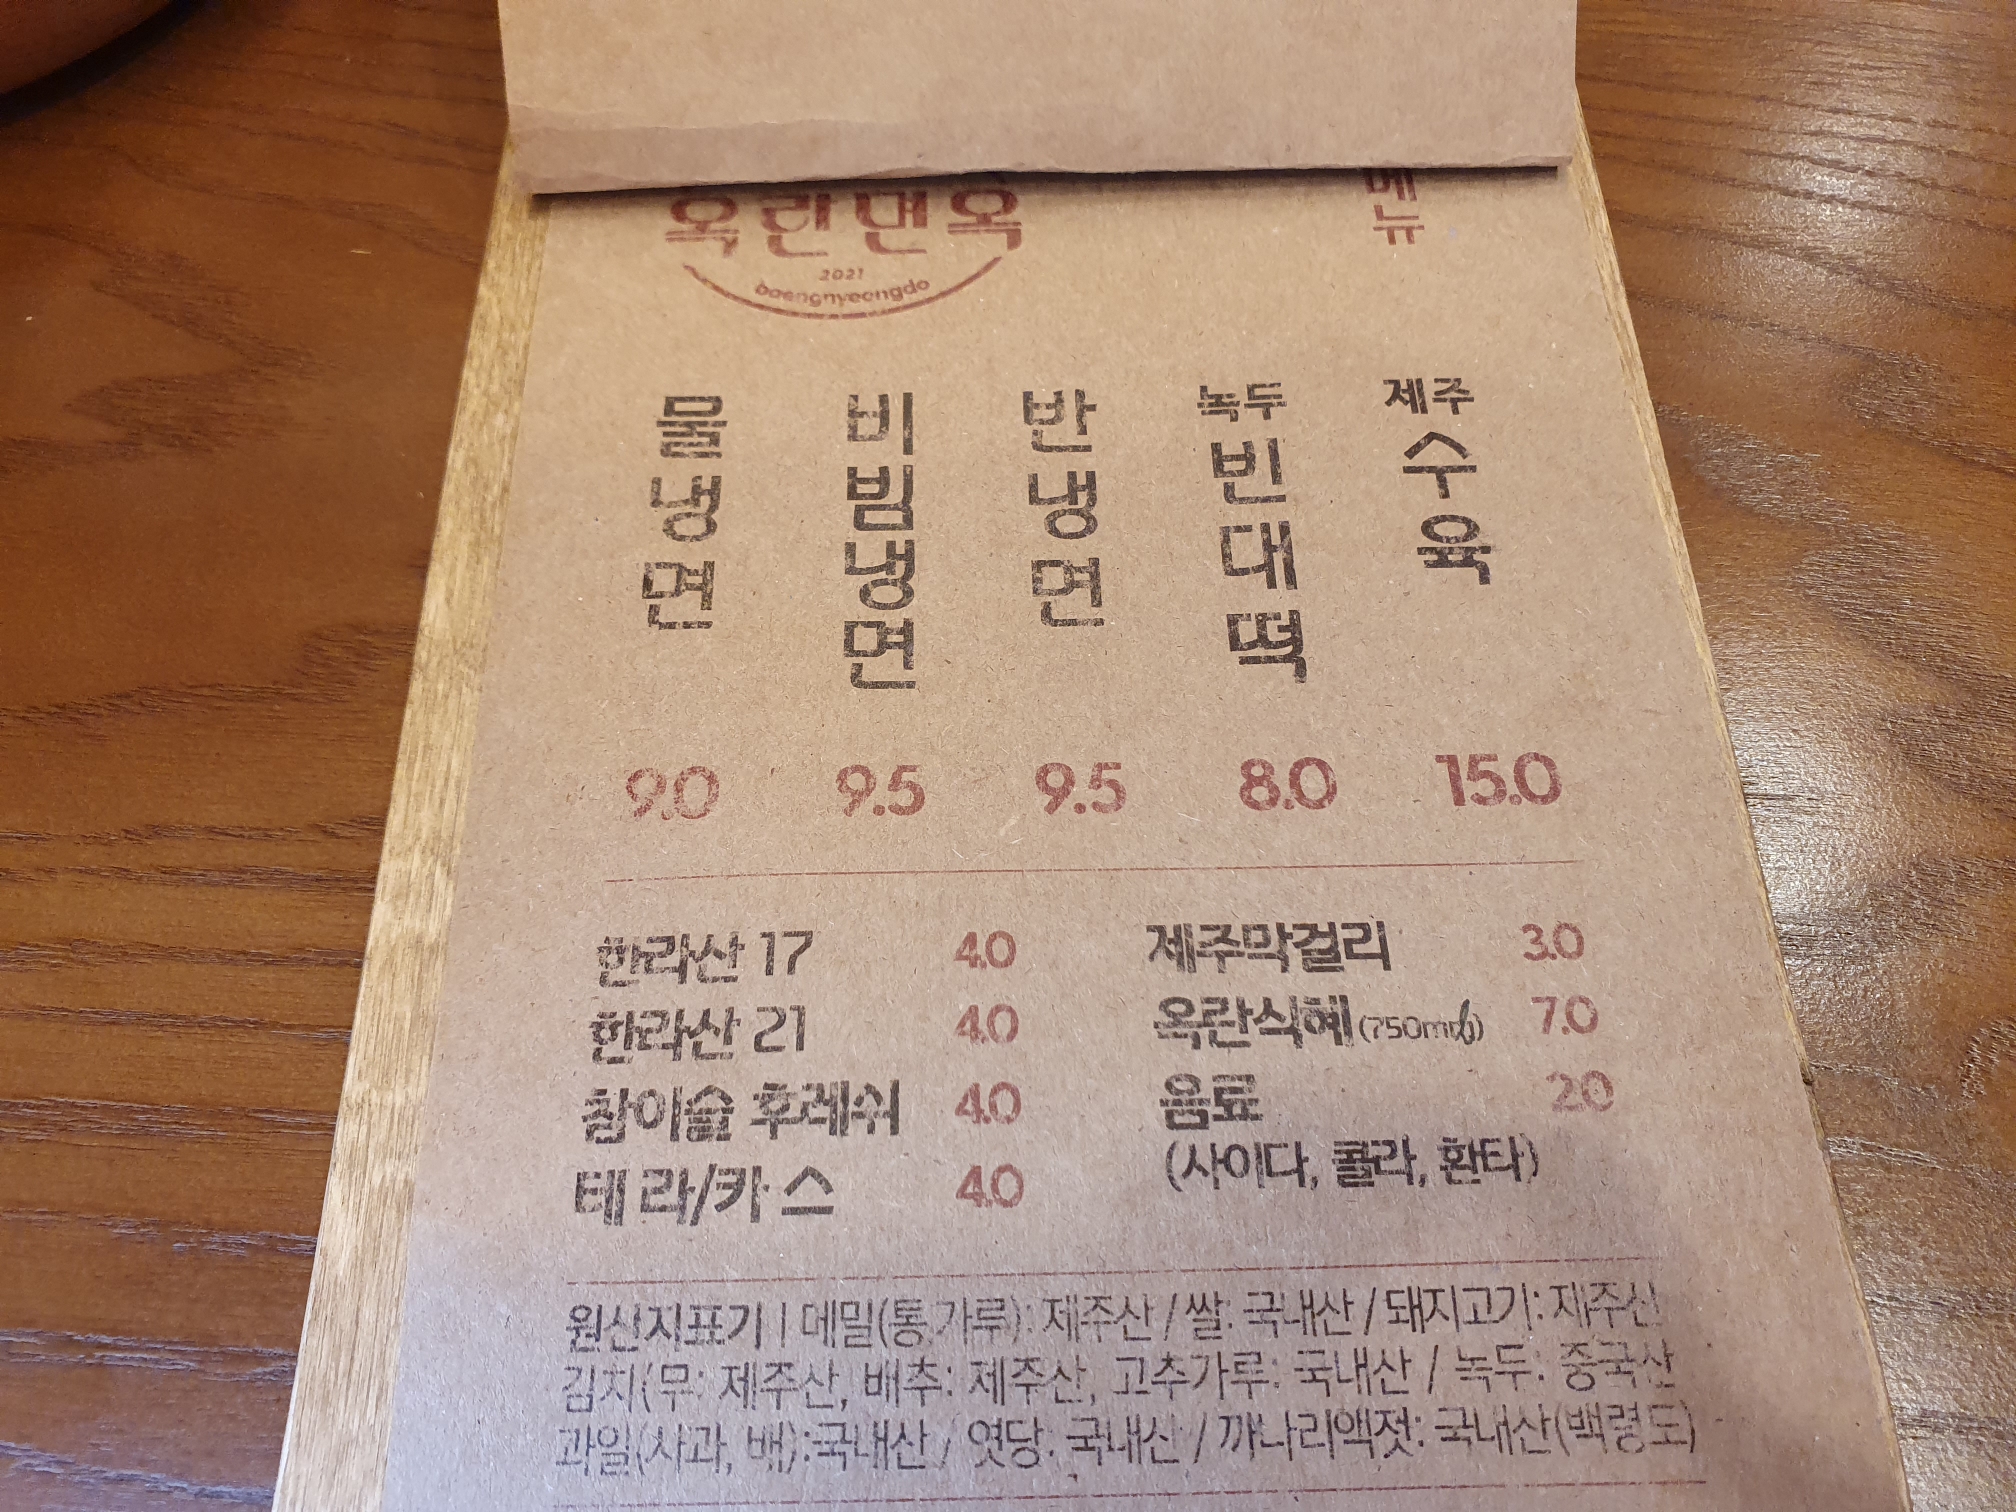 옥란면옥
2021
baengnyeongdo
메뉴
물냉면 9.0
비빔냉면 9.5
반냉면 9.5
녹두 빈대떡 8.0
제주 수육 15.0
한라산 17 4.0
한라산 21 4.0
참이슬 후레쉬 4.0
테라/카스 4.0
제주막걸리 3.0
옥란식혜 (750ml) 7.0
음료 2.0
(사이다, 콜라, 환타)
원산지표기 | 메밀(통,가루): 제주산 / 쌀: 국내산 / 돼지고기: 제주산
김치(무: 제주산, 배추: 제주산, 고추가루: 국내산 / 녹두: 중국산
과일(사과, 배):국내산 / 엿당: 국내산 / 까나리액젓: 국내산(백령도)